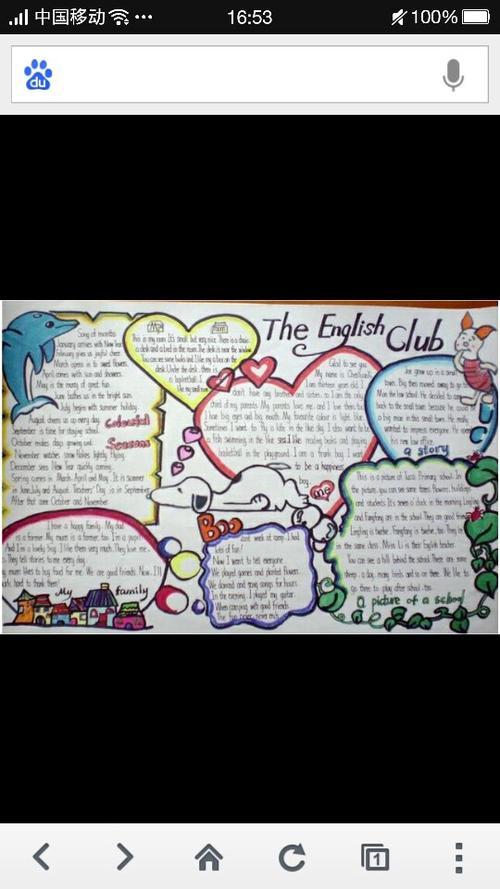 中国移动
16:53
100%
du
The English Club
Song of months
January arrives with New Year
February gives us joyful cheer.
March opens in to sweet flowers.
April comes with sun and showers.
May is the many of great fun.
June bathes us in the bright sun.
July begins with summer holiday.
August cheers us up every day.
September is time for staying school.
October makes days growing
November watches snow flakes lightly flying
December sees New Year quickly coming.
Spring comes in March, April and May. It is summer
in June, July and August. Teachers' Day is in September.
After that come October and November.
Colouful
Seasons
My
Room
This is my room. It's small but very nice. There is a
a desk and a bed in the room. The desk is near the window
You can see some books and
desk. Under the desk, there is
a basketball. I
like my small room
Glad to see you.
My name is
I am thirteen years old. I
don't have any brothers and sisters, so I am the only
child of my parents. My parents love me, and I love them too.
I have big eyes and big mouth. My favourite colour is light blue.
Sometimes I want to fly a kite in the blue sky, I also want to be
a fish swimming in the blue sea. I like reading books and playing
basketball in the playground. I am a frank boy. I want
to be a happiness
boy.
me
Joe grew up in a small
town. Big then moved away to
back to the small town, because he could
a big man in this small town. He really
wanted to impress everyone. He opened
his new law office.
a story
This is a picture of Tuici Primary school. In
the picture, you can see some trees, flowers, buildings
and students. It's seven o'clock in the morning. Lingling
and Fangfang are in the school. They are good friends.
Lingling is twelve. Fangfang is twelve, too. They are
in the same class. Miss Li is their English teacher.
You can see a hill behind the school. There are some
sheep, a dog, many birds and
go there to play after school, too.
A picture of a school
I have a happy family. My dad
is a farmer. My mum is a farmer, too. I'm a pupil
And I'm a lovely boy. I like them very much. They love me,
They tell stories to me every day.
mum likes to buy food for me. We are good friends. Now, I'll
work hard to thank them!
My family
Boo
week at camp. I had
lots of fun!
Now I want to tell everyone.
We played games and planted flowers.
We danced and sang songs for hours.
In the evening, I played my guitar.
When camping with good friends.
The fun never never ends.
1